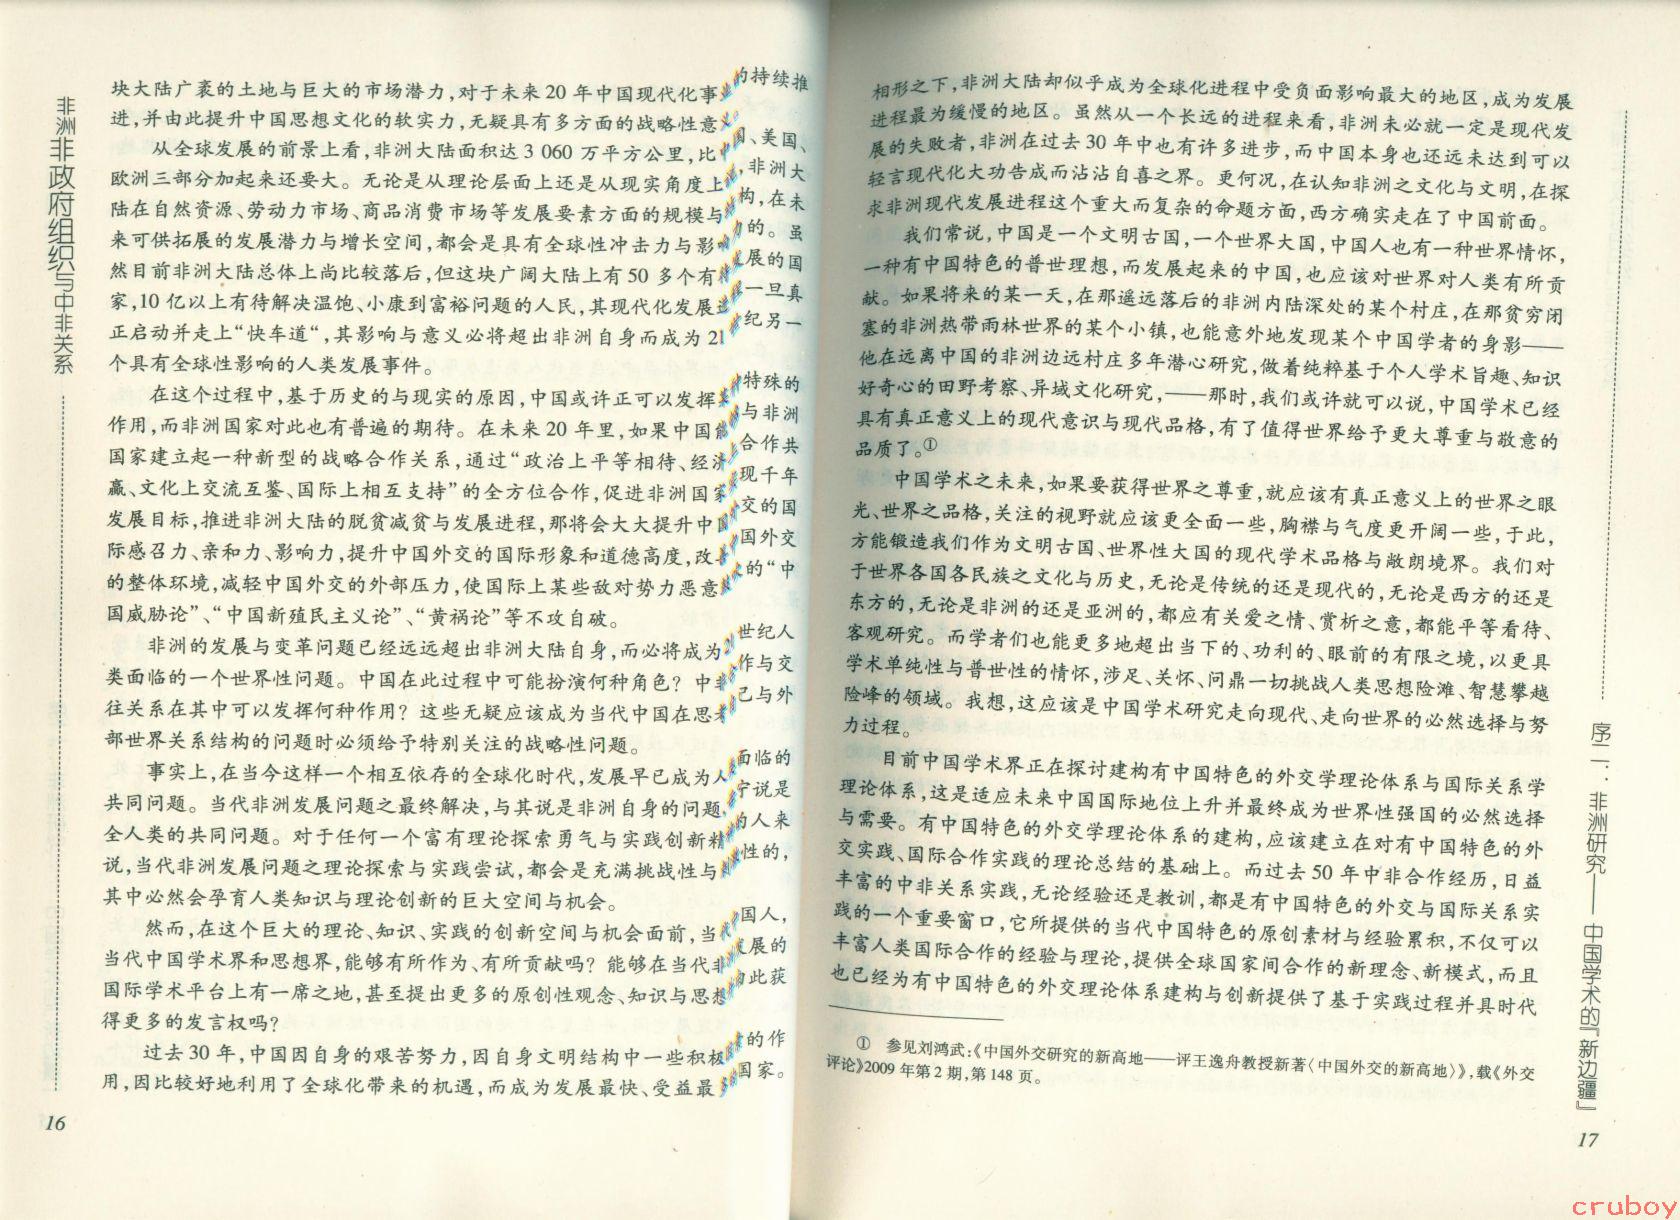 非洲非政府组织与中非关系
块大陆广袤的土地与巨大的市场潜力,对于未来 20 年中国现代化事业的持续推
进,并由此提升中国思想文化的软实力,无疑具有多方面的战略性意义。
从全球发展的前景上看,非洲大陆面积达 3 060 万平方公里,比中国、美国、
欧洲三部分加起来还要大。无论是从理论层面上还是从现实角度上说,非洲大
陆在自然资源、劳动力市场、商品消费市场等发展要素方面的规模与结构,在未
来可供拓展的发展潜力与增长空间,都会是具有全球性冲击力与影响力的。虽
然目前非洲大陆总体上尚比较落后,但这块广阔大陆上有 50 多个有待发展的国
家,10 亿以上有待解决温饱、小康到富裕问题的人民,其现代化发展进程一旦真
正启动并走上“快车道“,其影响与意义必将超出非洲自身而成为 21 世纪另一
个具有全球性影响的人类发展事件。
在这个过程中,基于历史的与现实的原因,中国或许正可以发挥某种特殊的
作用,而非洲国家对此也有普遍的期待。在未来 20 年里,如果中国能够与非洲
国家建立起一种新型的战略合作关系,通过“政治上平等相待、经济上合作共
赢、文化上交流互鉴、国际上相互支持”的全方位合作,促进非洲国家实现千年
发展目标,推进非洲大陆的脱贫减贫与发展进程,那将会大大提升中国外交的国
际感召力、亲和力、影响力,提升中国外交的国际形象和道德高度,改善中国外交
的整体环境,减轻中国外交的外部压力,使国际上某些敌对势力恶意的“中
国威胁论”、“中国新殖民主义论”、“黄祸论”等不攻自破。
非洲的发展与变革问题已经远远超出非洲大陆自身,而必将成为 21 世纪人
类面临的一个世界性问题。中国在此过程中可能扮演何种角色? 中非合作与交
往关系在其中可以发挥何种作用? 这些无疑应该成为当代中国在思考自己与外
部世界关系结构的问题时必须给予特别关注的战略性问题。
事实上,在当今这样一个相互依存的全球化时代,发展早已成为人类面临的
共同问题。当代非洲发展问题之最终解决,与其说是非洲自身的问题,宁说是
全人类的共同问题。对于任何一个富有理论探索勇气与实践创新精神的人来
说,当代非洲发展问题之理论探索与实践尝试,都会是充满挑战性与刺激性的,
其中必然会孕育人类知识与理论创新的巨大空间与机会。
然而,在这个巨大的理论、知识、实践的创新空间与机会面前,当代中国人,
当代中国学术界和思想界,能够有所作为、有所贡献吗? 能够在当代非洲发展的
国际学术平台上有一席之地,甚至提出更多的原创性观念、知识与思想,由此获
得更多的发言权吗?
过去 30 年,中国因自身的艰苦努力,因自身文明结构中一些积极因素的作
用,因比较好地利用了全球化带来的机遇,而成为发展最快、受益最多的国家。
16
相形之下,非洲大陆却似乎成为全球化进程中受负面影响最大的地区,成为发展
进程最为缓慢的地区。虽然从一个长远的进程来看,非洲未必就一定是现代发
展的失败者,非洲在过去 30 年中也有许多进步,而中国本身也还远未达到可以
轻言现代化大功告成而沾沾自喜之界。更何况,在认知非洲之文化与文明,在探
求非洲现代发展进程这个重大而复杂的命题方面,西方确实走在了中国前面。
我们常说,中国是一个文明古国,一个世界大国,中国人也有一种世界情怀,
一种有中国特色的普世理想,而发展起来的中国,也应该对世界对人类有所贡
献。如果将来的某一天,在那遥远落后的非洲内陆深处的某个村庄,在那贫穷闭
塞的非洲热带雨林世界的某个小镇,也能意外地发现某个中国学者的身影——
他在远离中国的非洲边远村庄多年潜心研究,做着纯粹基于个人学术旨趣、知识
好奇心的田野考察、异域文化研究,——那时,我们或许就可以说,中国学术已经
具有真正意义上的现代意识与现代品格,有了值得世界给予更大尊重与敬意的
品质了。①
中国学术之未来,如果要获得世界之尊重,就应该有真正意义上的世界之眼
光、世界之品格,关注的视野就应该更全面一些,胸襟与气度更开阔一些,于此,
方能锻造我们作为文明古国、世界性大国的现代学术品格与敞朗境界。我们对
于世界各国各民族之文化与历史,无论是传统的还是现代的,无论是西方的还是
东方的,无论是非洲的还是亚洲的,都应有关爱之情、赏析之意,都能平等看待、
客观研究。而学者们也能更多地超出当下的、功利的、眼前的有限之境,以更具
学术单纯性与普世性的情怀,涉足、关怀、问鼎一切挑战人类思想险滩、智慧攀越
险峰的领域。我想,这应该是中国学术研究走向现代、走向世界的必然选择与努
力过程。
目前中国学术界正在探讨建构有中国特色的外交学理论体系与国际关系学
理论体系,这是适应未来中国国际地位上升并最终成为世界性强国的必然选择
与需要。有中国特色的外交学理论体系的建构,应该建立在对有中国特色的外
交实践、国际合作实践的理论总结的基础上。而过去 50 年中非合作经历,日益
丰富的中非关系实践,无论经验还是教训,都是有中国特色的外交与国际关系实
践的一个重要窗口,它所提供的当代中国特色的原创素材与经验累积,不仅可以
丰富人类国际合作的经验与理论,提供全球国家间合作的新理念、新模式,而且
也已经为有中国特色的外交理论体系建构与创新提供了基于实践过程并具时代
① 参见刘鸿武:《中国外交研究的新高地——评王逸舟教授新著〈中国外交的新高地〉》,载《外交
评论》2009 年第 2 期,第 148 页。
序二:非洲研究——中国学术的『新边疆』
17
cruboy